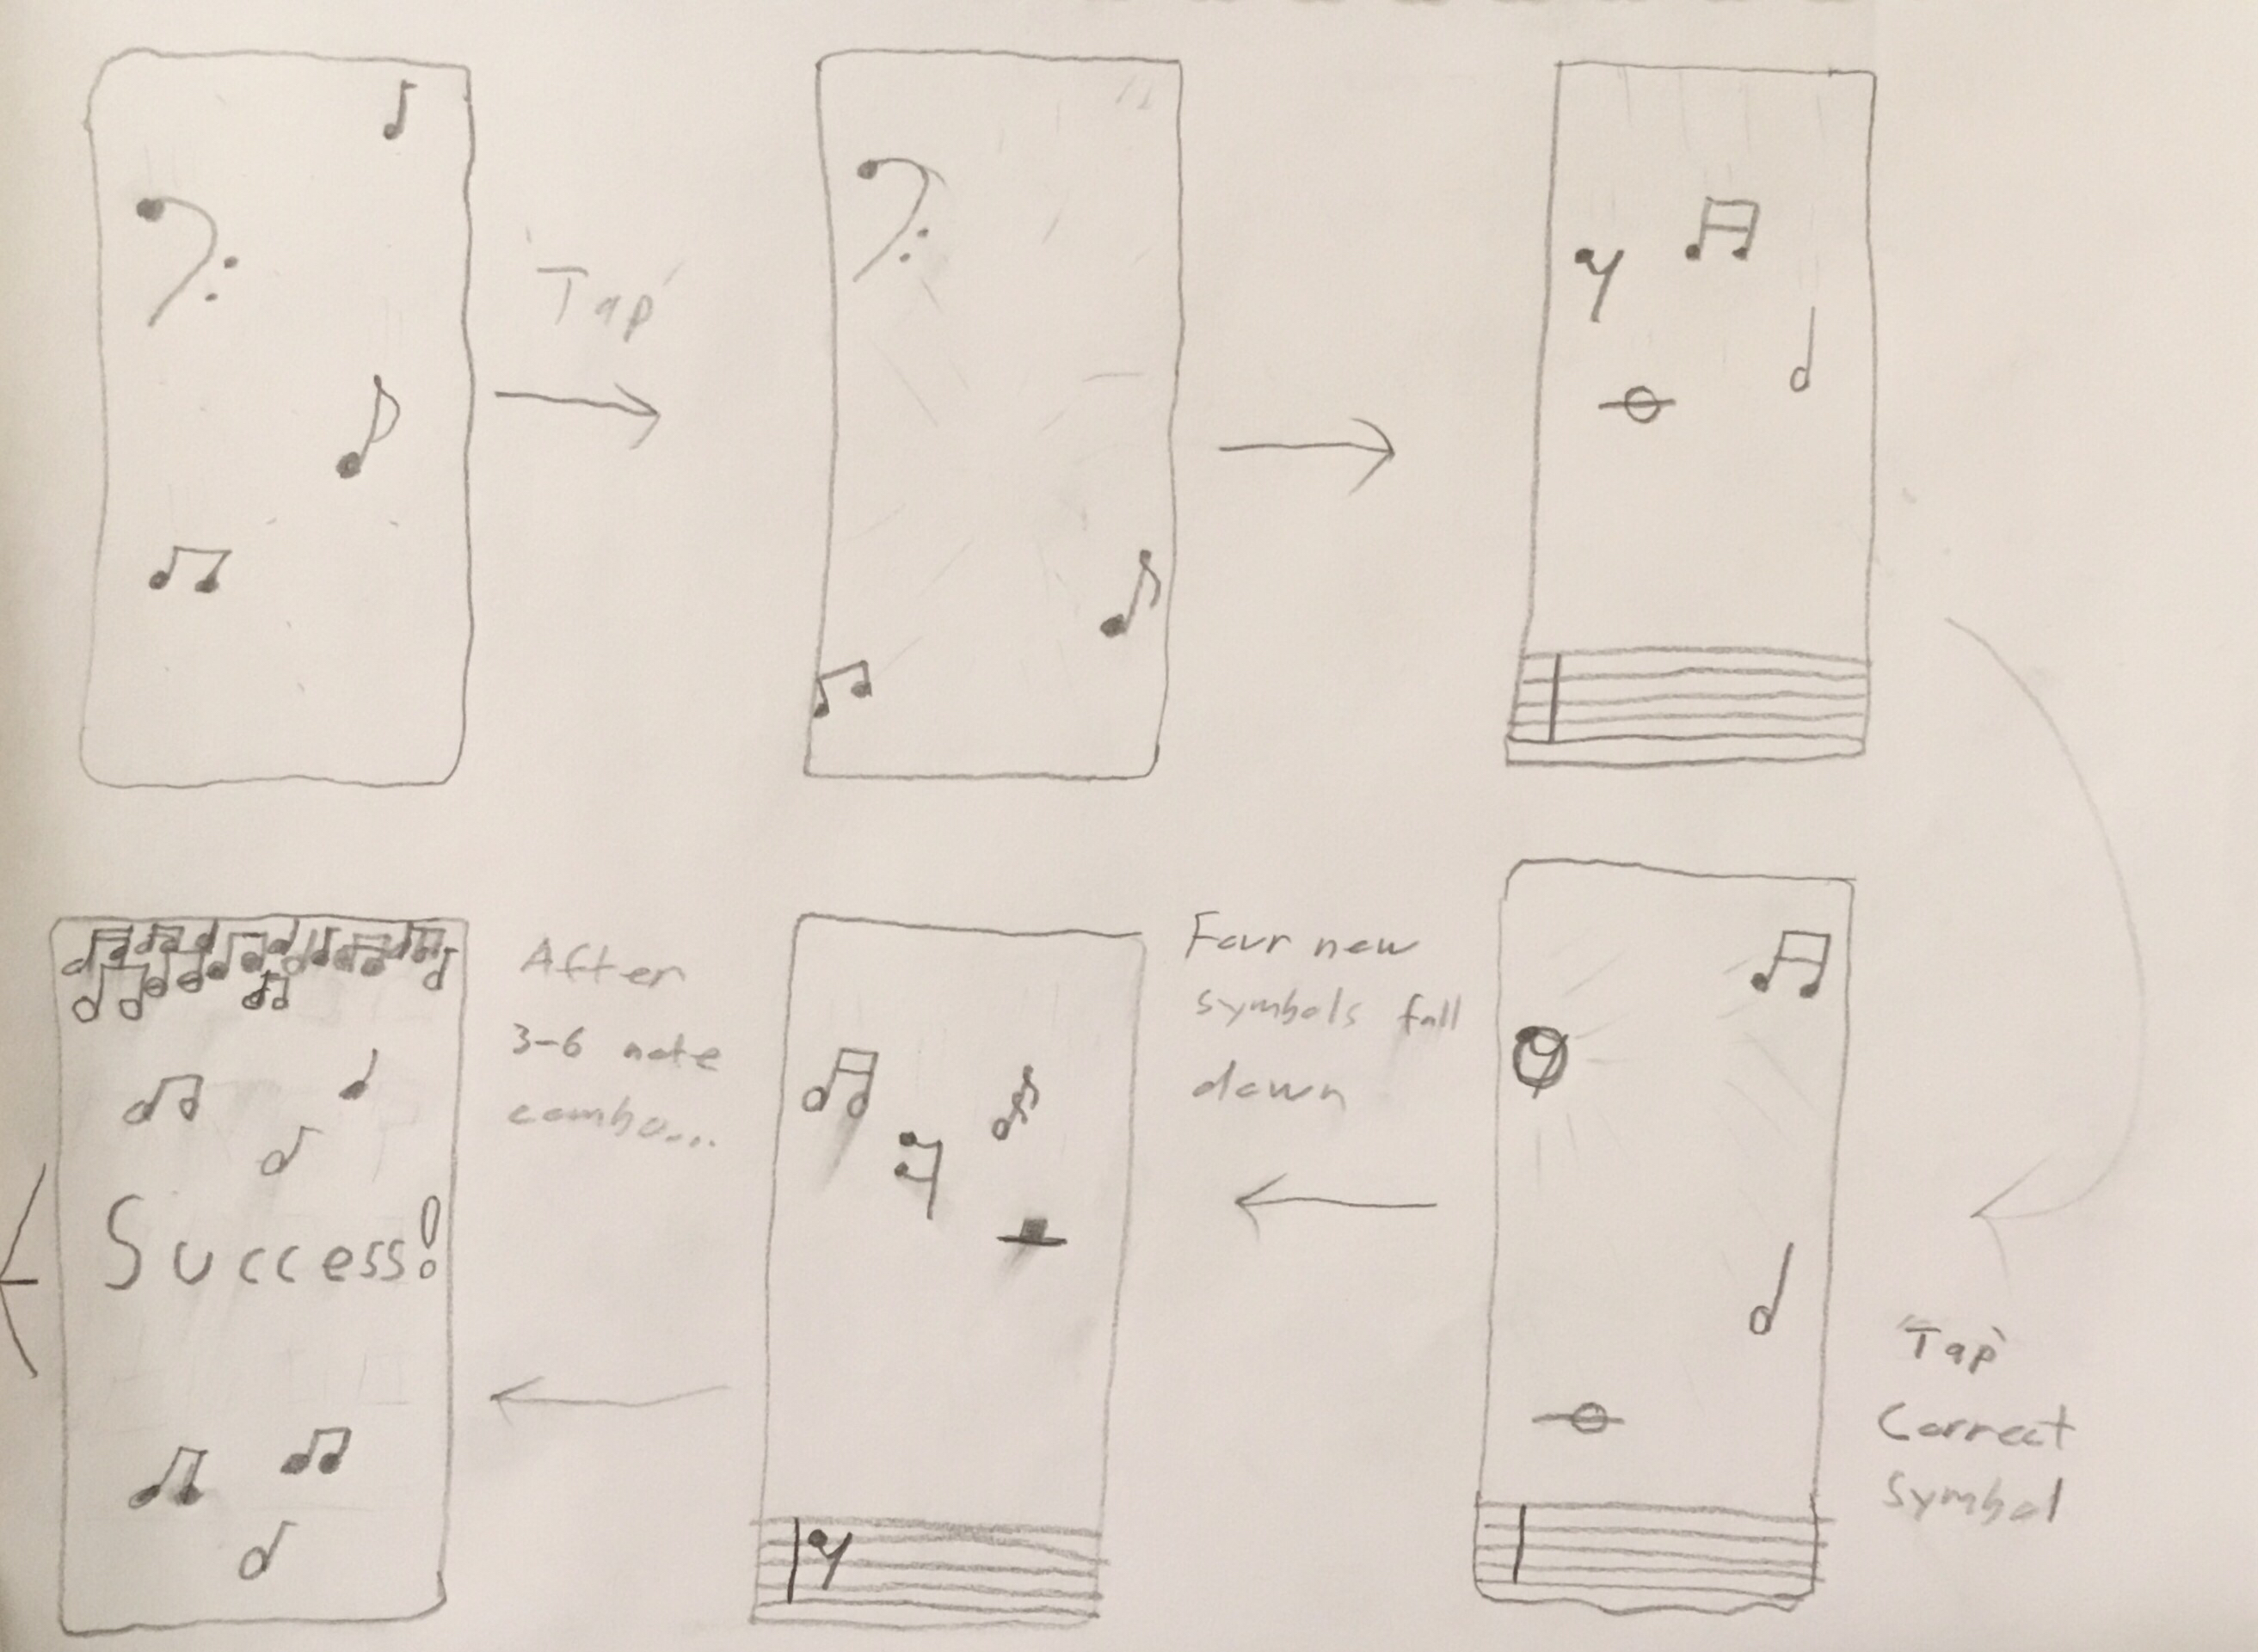 Tap
"Tap"
Correct
Symbol
Four new
symbols fall
down
After
3-6 note
combo...
Success!